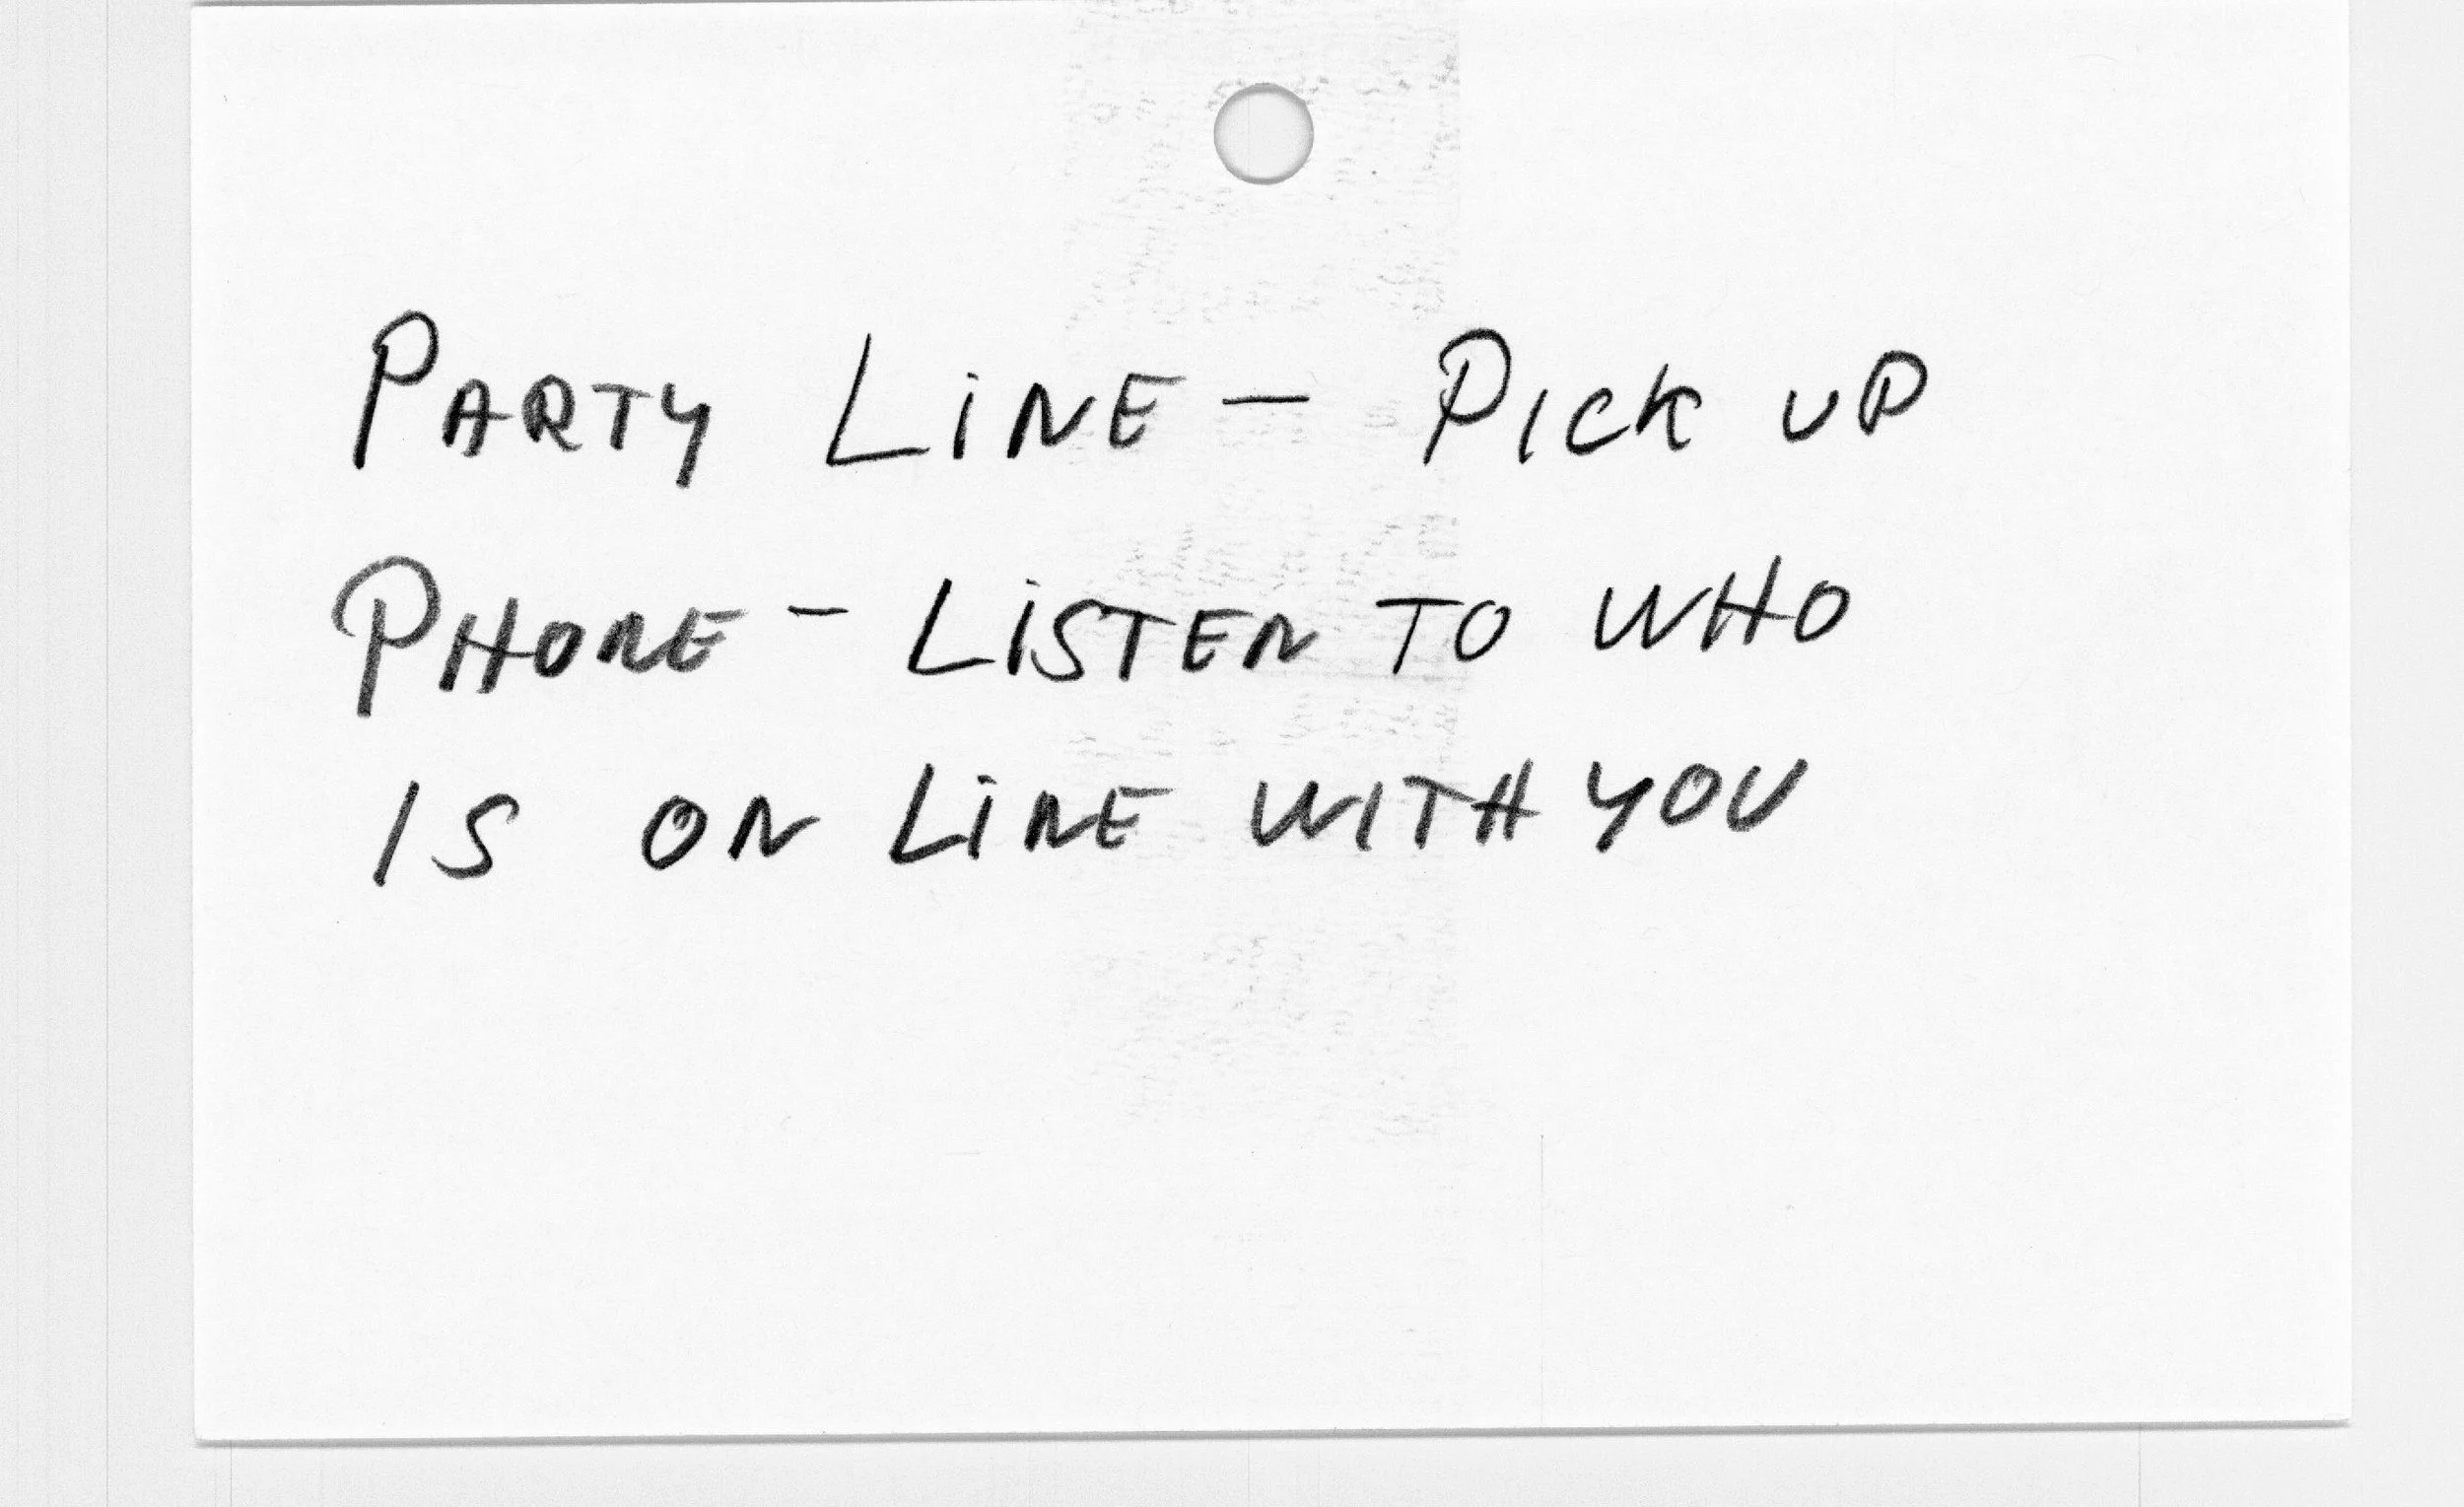 PARTY LiNE - PICK UP
PHONE - LiSTEN TO WHO
IS ON LiNE WITH YOU